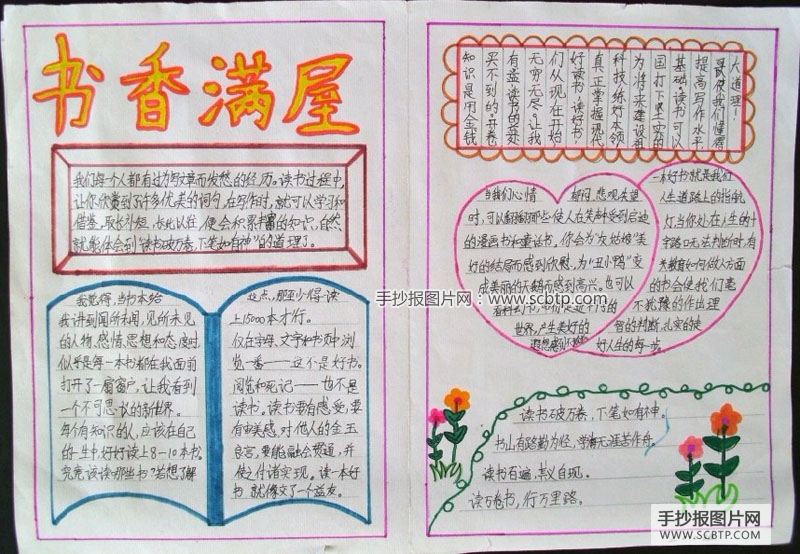 书香满屋
我们每个人都有过为写文章而发愁的经历。读书过程中,
让你欣赏到了许多优美的词句,在写作时,就可以学习和
借鉴。取长补短,点此以往,便会积累丰富的知识,自然
就能体会到"读书破万卷,下笔如有神"的道理了。
我觉得,当书本给
我讲到闻所未闻,见所未见
的人物、感情、思想和态度时,
似乎是每一本书都在我面前
打开了一扇窗户,让我看到
一个不可思议的新世界。
每个有知识的人,应该在自己
的一生中,好好读上8-10本书。
究竟该读那些书?若想了解
这点,那至少得读
上15000本才行。
仅在字母、文字和书页中浏
览一番——这不是好书。
阅览和死记——也不是
读书。读书要有感受,要
有审美感,对他人的金玉
良言,要能融会贯通,并
使之付诸实现。读一本好
书,就像交了一个益友。
大道理!
哥 使我们懂得
提高写作水平,
基础。读书可以
国打下坚实的
为将来建设祖
科技,练好本领,
真正掌握现代
好读书,读好书,
们从现在开始
无穷无尽。让我
有益,读书的益处
买不到的。开卷
知识是用金钱
当我们心情 郁闷、悲观失望
时,可以翻翻那些使人在笑料中受到启迪
的漫画书和童话书。你会为"灰姑娘"美
好的结局而感到欣慰,为"丑小鸭"变
成美丽的天鹅而感到高兴。也可以
看科幻书,
世界,产生美好的
遐想
一本好书就是我们
人生道路上的指航
灯,当你处在人生的十
字路口无法判断时,有
关教育如何做人方面
的书会使我们毫
不犹豫的作出理
智的判断,扎实的走
好人生的每一步。
读书破万卷,下笔如有神。
书山有路勤为径,学海无涯苦作舟。
读书百遍,其义自现。
读万卷书,行万里路。
手抄报图片网:www.scbtp.com
手抄报图片网
WWW.SCBTP.COM